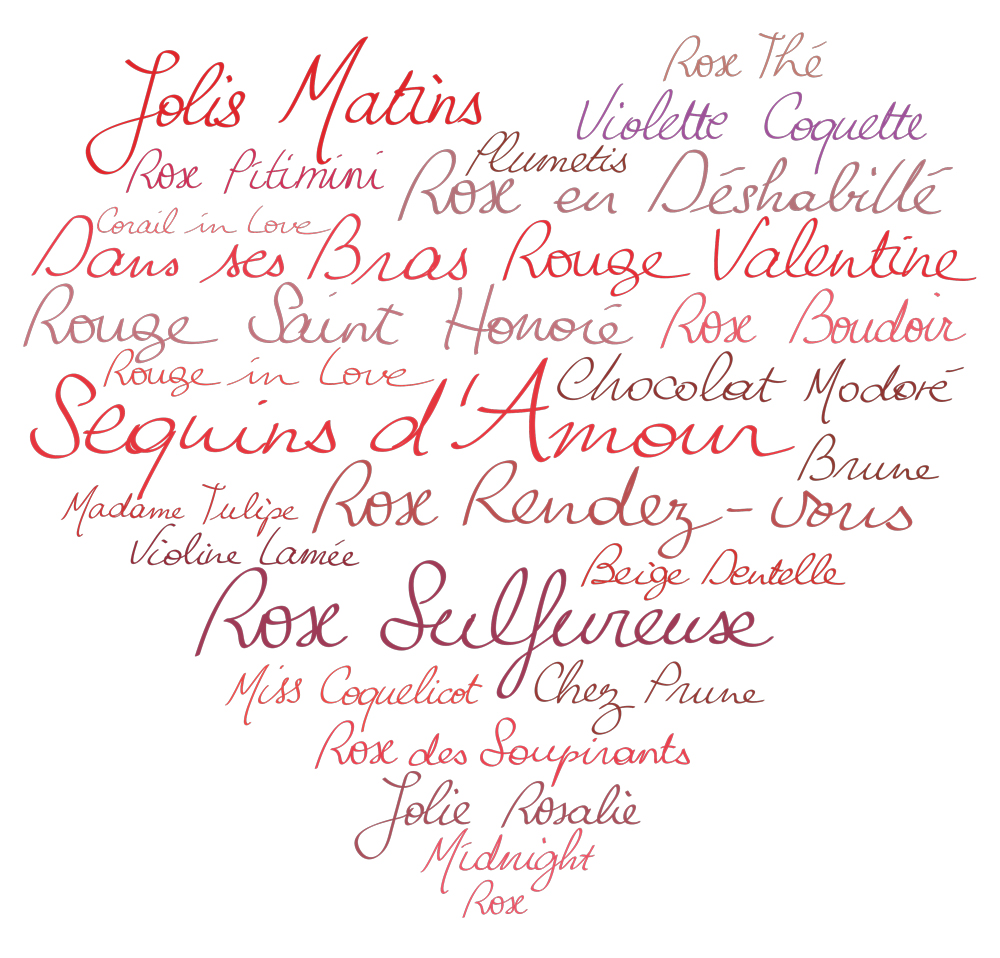 Jolis Matins
Rose Thé
Violette Coquette
Plumetis
Rose Pitimini
Rose en Déshabillé
Corail in Love
Dans ses Bras
Rouge Valentine
Rouge Saint Honoré
Rose Boudoir
Rouge in Love
Chocolat Modoré
Sequins d'Amour
Brune
Madame Tulipe
Rose Rendez-vous
Violine Lamée
Beige Dentelle
Rose Sulfureuse
Miss Coquelicot
Chez Prune
Rose des Soupirants
Jolie Rosalie
Midnight
Rose